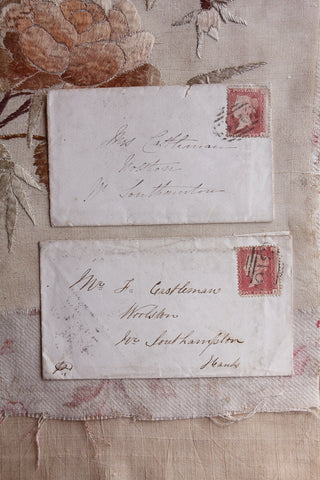 Mrs Castleman
Woolston
Nr Southampton
Mr F. Castleman
Woolston
Nr Southampton
Hants